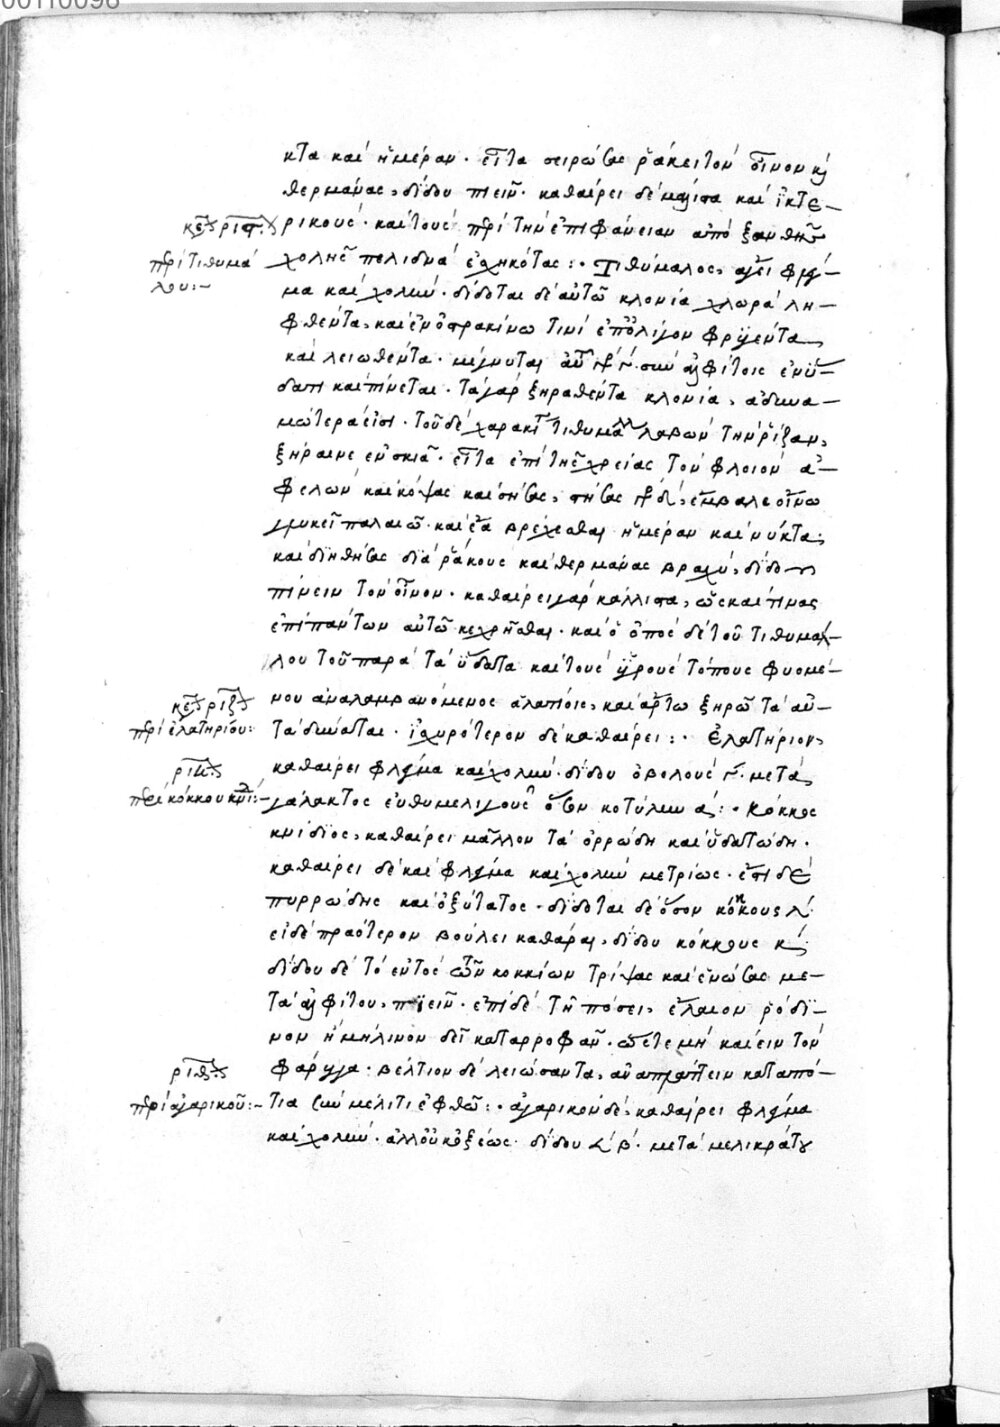 00110096
κτα καὶ ἡμέραν· εἶτα σειρώσας ῥάκει τὸν οἶνον κ
θερμάνας, δίδου πιεῖν· καθαίρει δὲ μάλιστα καὶ ἰκτε-
ρικοὺς· καὶ τοὺς περὶ τὴν ἐπιφάνειαν ἀπὸ ξανθῆς
περὶ τιθυμά
λου:-
χολῆς πελιδνὰ ἐσχηκότας:· Τιθύμαλος, ἄγει φλέγ-
μα καὶ χολήν· δίδοται δὲ αὐτῶ κλονία χλωρὰ λη-
φθέντα, καὶ ἐν ὀστρακίνω τινὶ ἐπ' ὀλίγον φρυγέντα
καὶ λειωθέντα· μίγνυται σὺν ἀλφίτοις ἐν ὕ-
δατι καὶ πίνεται· τὰ γὰρ ξηραθέντα κλονία, ἀδυνα-
μώτερα εἰσί· τοῦ δὲ χαρακί τιθυμά λαβὼν τὴν ῥίζαν,
ξήραινε ἐν σκιᾶ· εἶτα ἐπὶ τῆς χρείας τὸν φλοιὸν ἀ-
φελὼν καὶ κόψας καὶ σήσας, στήσας δ, ἔμβαλε οἴνω
γλυκεῖ παλαιῶ· καὶ ἔα βρέχεσθαι ἡμέραν καὶ νύκτα,
καὶ διηθήσας διὰ ῥάκους καὶ θερμάνας βραχὺ, δίδου
πίνειν τὸν οἶνον· καθαίρει γὰρ κάλλιστα, ὥς καί τινας
ἐπὶ πάντων αὐτῶ κεχρῆσθαι· καὶ ὁ ὀπὸς δὲ τοῦ τιθυμάλ-
λου τοῦ παρὰ τὰ ὕδατα καὶ τοὺς ὑγροὺς τόπους φυομέ-
νου ἀναλαμβανόμενος καὶ ἄρτω ξηρῶ τὰ αὐ-
περὶ ἐλατηρίου:
τὰ δύναται· ἰσχυρότερον δὲ καθαίρει:· Ἐλατήριον,
καθαίρει φλέγμα καὶ χολήν· δίδου ὀβολοὺς γ· μετὰ
περὶ κόκκου κνιδί:-
γάλακτος ὅσον κοτύλην α:· Κόκκος
κνίδιος, καθαίρει μᾶλλον τὰ ὀρρώδη καὶ ὑδατώδη·
καθαίρει δὲ καὶ φλέγμα καὶ χολὴν μετρίως· ἔστι δὲ
πυρρώδης καὶ ὀξύτατος· δίδοται δὲ ὅσον κόκκους λ·
εἰ δὲ πραότερον βούλει καθάραι, δίδου κόκκους κ·
δίδου δὲ τὸ ἐντὸς τῶν κοκκίων τρίψας καὶ ἑνώσας με-
τὰ ἀλφίτου, πιεῖν· ἐπὶ δὲ τῆ πόσει, ἔλαιον ῥόδι-
νον ἢ μήλινον δεῖ καταρροφᾶν· ὥστε μὴ καίειν τὸν
φάρυγγα· βέλτιον δὲ λειώσαντα, ἀναπλάττειν καταπό-
περὶ ἀγαρικοῦ:-
τια σὺν μέλιτι ἑφθῶ:· ἀγαρικὸν δὲ, καθαίρει φλέγμα
καὶ χολήν· ἀλλ' οὐκ ὀξέως· δίδου β· μετὰ μελικράτου